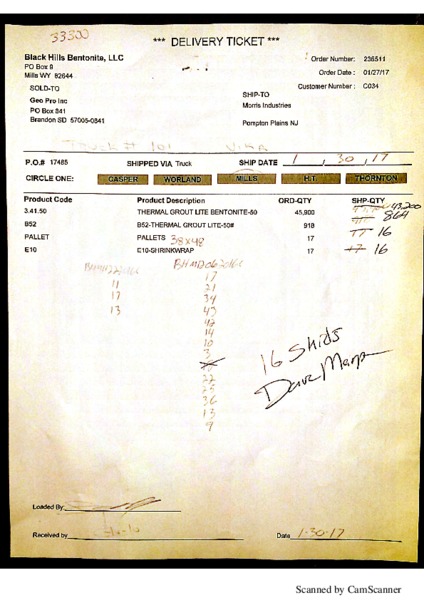 33300
*** DELIVERY TICKET ***
Black Hills Bentonite, LLC
PO Box 9
Mills WY 82644
Order Number: 236511
Order Date : 01/27/17
Customer Number : C034
SOLD-TO
Geo Pro Inc
PO Box 341
Brandon SD 57005-0841
SHIP-TO
Morris Industries
Pompton Plains NJ
Truck # 101
P.O.# 17485 SHIPPED VIA Truck SHIP DATE 1 , 30 , 17
CIRCLE ONE: CASPER WORLAND MILLS H.T. THORNTON
Product Code Product Description ORD-QTY SHP-QTY
3.41.50 THERMAL GROUT LITE BENTONITE-50 45,900 43,200
B52 B52-THERMAL GROUT LITE-50# 918 864
PALLET PALLETS 38x48 17 17 16
E10 E10-SHRINKWRAP 17 17 16
11
17
13
17
21
34
43
42
14
10
3
22
25
36
13
9
16 Skids
Dave
Loaded By:
Received by
Date 1-30-17
Scanned by CamScanner